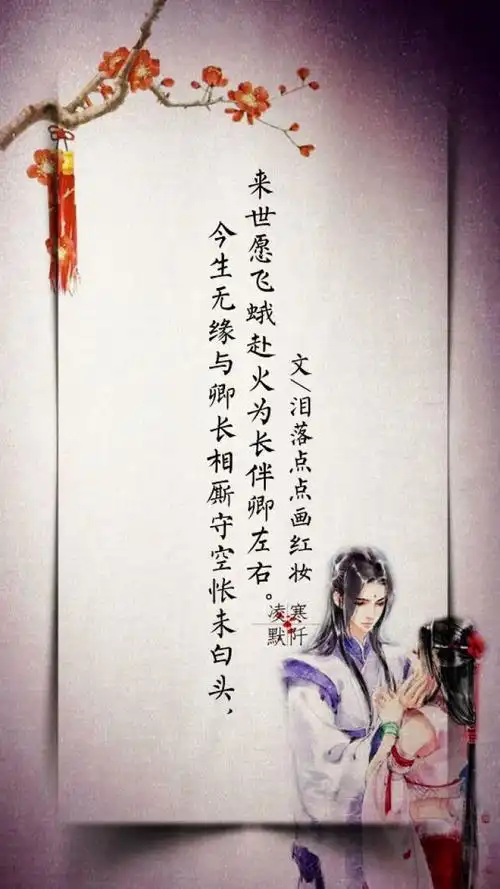 今生无缘与卿长相厮守空怅未白头，
来世愿飞蛾赴火为长伴卿左右。
文/泪落点点画红妆
凌寒
默阡